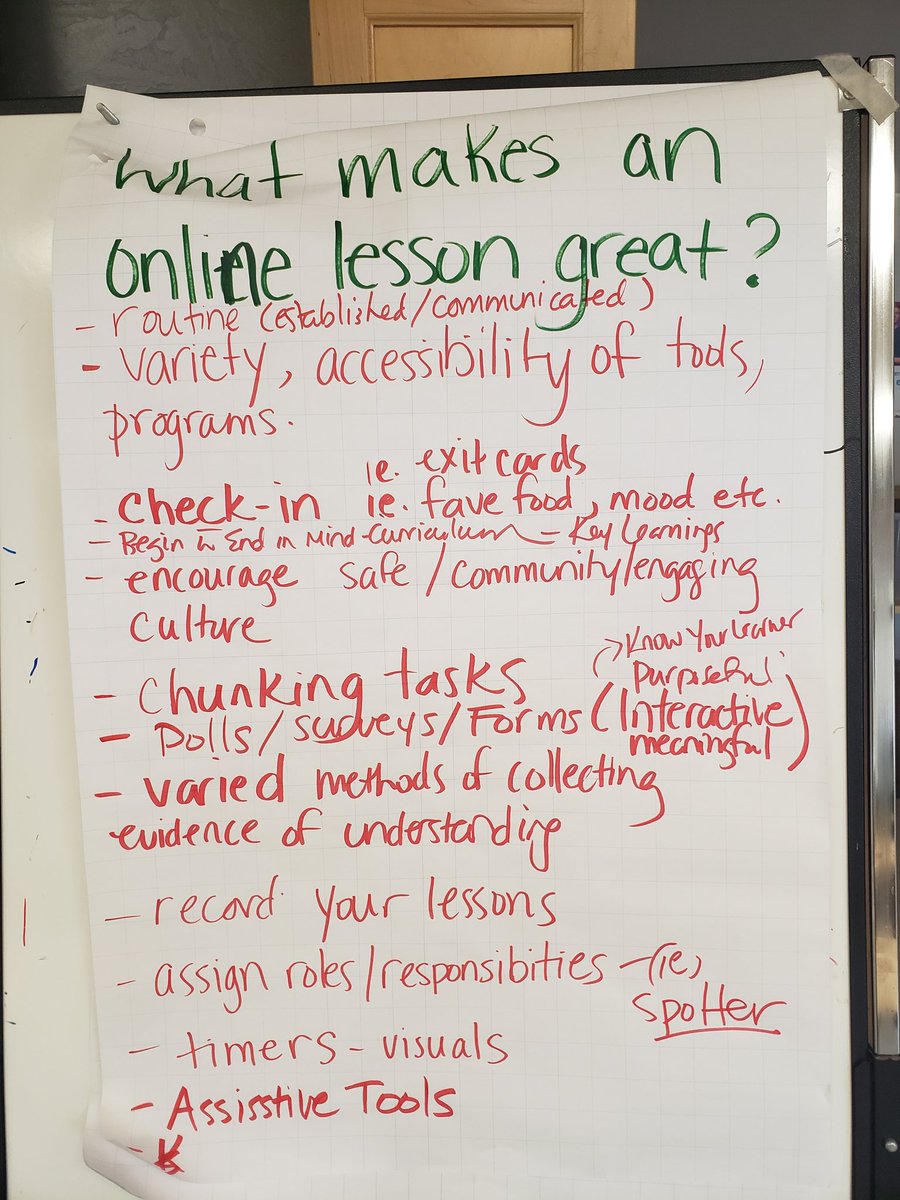 What makes an
online lesson great?
- routine (established/communicated)
- variety, accessibility of tools,
programs.
ie. exit cards
- check-in ie. fave food, mood etc.
- Begin w End in Mind - Curriculum - Key Learnings
- encourage safe/community/engaging
culture
→ Know Your Learner
- chunking tasks purposeful
- Polls/surveys/Forms (Interactive)
meaningful
- varied methods of collecting
evidence of understanding
- record your lessons
- assign roles/responsibities - (ie)
spotter
- timers - visuals
- Assisstive Tools
-